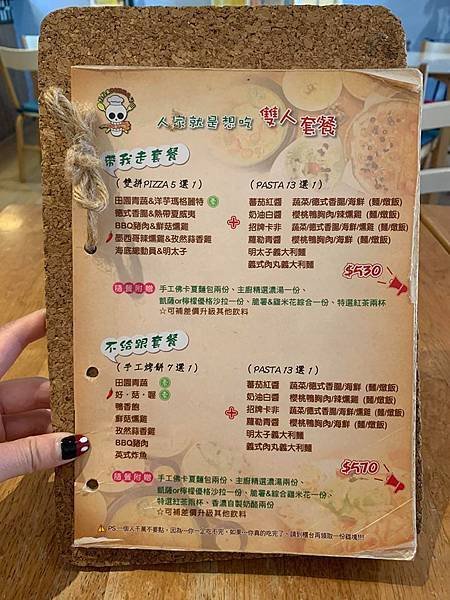 人家就是想吃 雙人套餐
帶我走套餐
(雙拼PIZZA 5 選 1)
(PASTA 13 選 1)
田園青蔬&洋芋瑪格麗特 素
德式香腸&熱帶夏威夷
BBQ豬肉&鮮菇燻雞
墨西哥辣燻雞&孜然蒜香雞
海底總動員&明太子
+
蕃茄紅醬 蔬菜/德式香腸/海鮮 (麵/燉飯)
奶油白醬 櫻桃鴨胸肉/辣燻雞 (麵/燉飯)
招牌卡非 蔬菜/德式香腸/海鮮/燻雞 (麵/燉飯)
羅勒青醬 櫻桃鴨胸肉/海鮮 (麵/燉飯)
明太子義大利麵
義式肉丸義大利麵
$530
隨餐附贈 手工佛卡夏麵包兩份、主廚精選濃湯一份、
凱薩or檸檬優格沙拉一份、脆薯&雞米花綜合一份、特選紅茶兩杯
☆可補差價升級其他飲料
不給跟套餐
(手工烤餅 7 選 1)
(PASTA 13 選 1)
田園青蔬 素
好·菇·喔 素
鴨香飽
鮮菇燻雞
孜然蒜香雞
BBQ豬肉
英式炸魚
+
蕃茄紅醬 蔬菜/德式香腸/海鮮 (麵/燉飯)
奶油白醬 櫻桃鴨胸肉/辣燻雞 (麵/燉飯)
招牌卡非 蔬菜/德式香腸/海鮮/燻雞 (麵/燉飯)
羅勒青醬 櫻桃鴨胸肉/海鮮 (麵/燉飯)
明太子義大利麵
義式肉丸義大利麵
$570
隨餐附贈 手工佛卡夏麵包兩份、主廚精選濃湯兩份、
凱薩or檸檬優格沙拉一份、脆薯&綜合雞米花一份、
特選紅茶兩杯、香濃自製奶酪兩份
☆可補差價升級其他飲料
PS.一個人千萬不要點，因為一你一定吃不完，如果一你真的吃完了，請到櫃台再領取一份雞塊!!!!